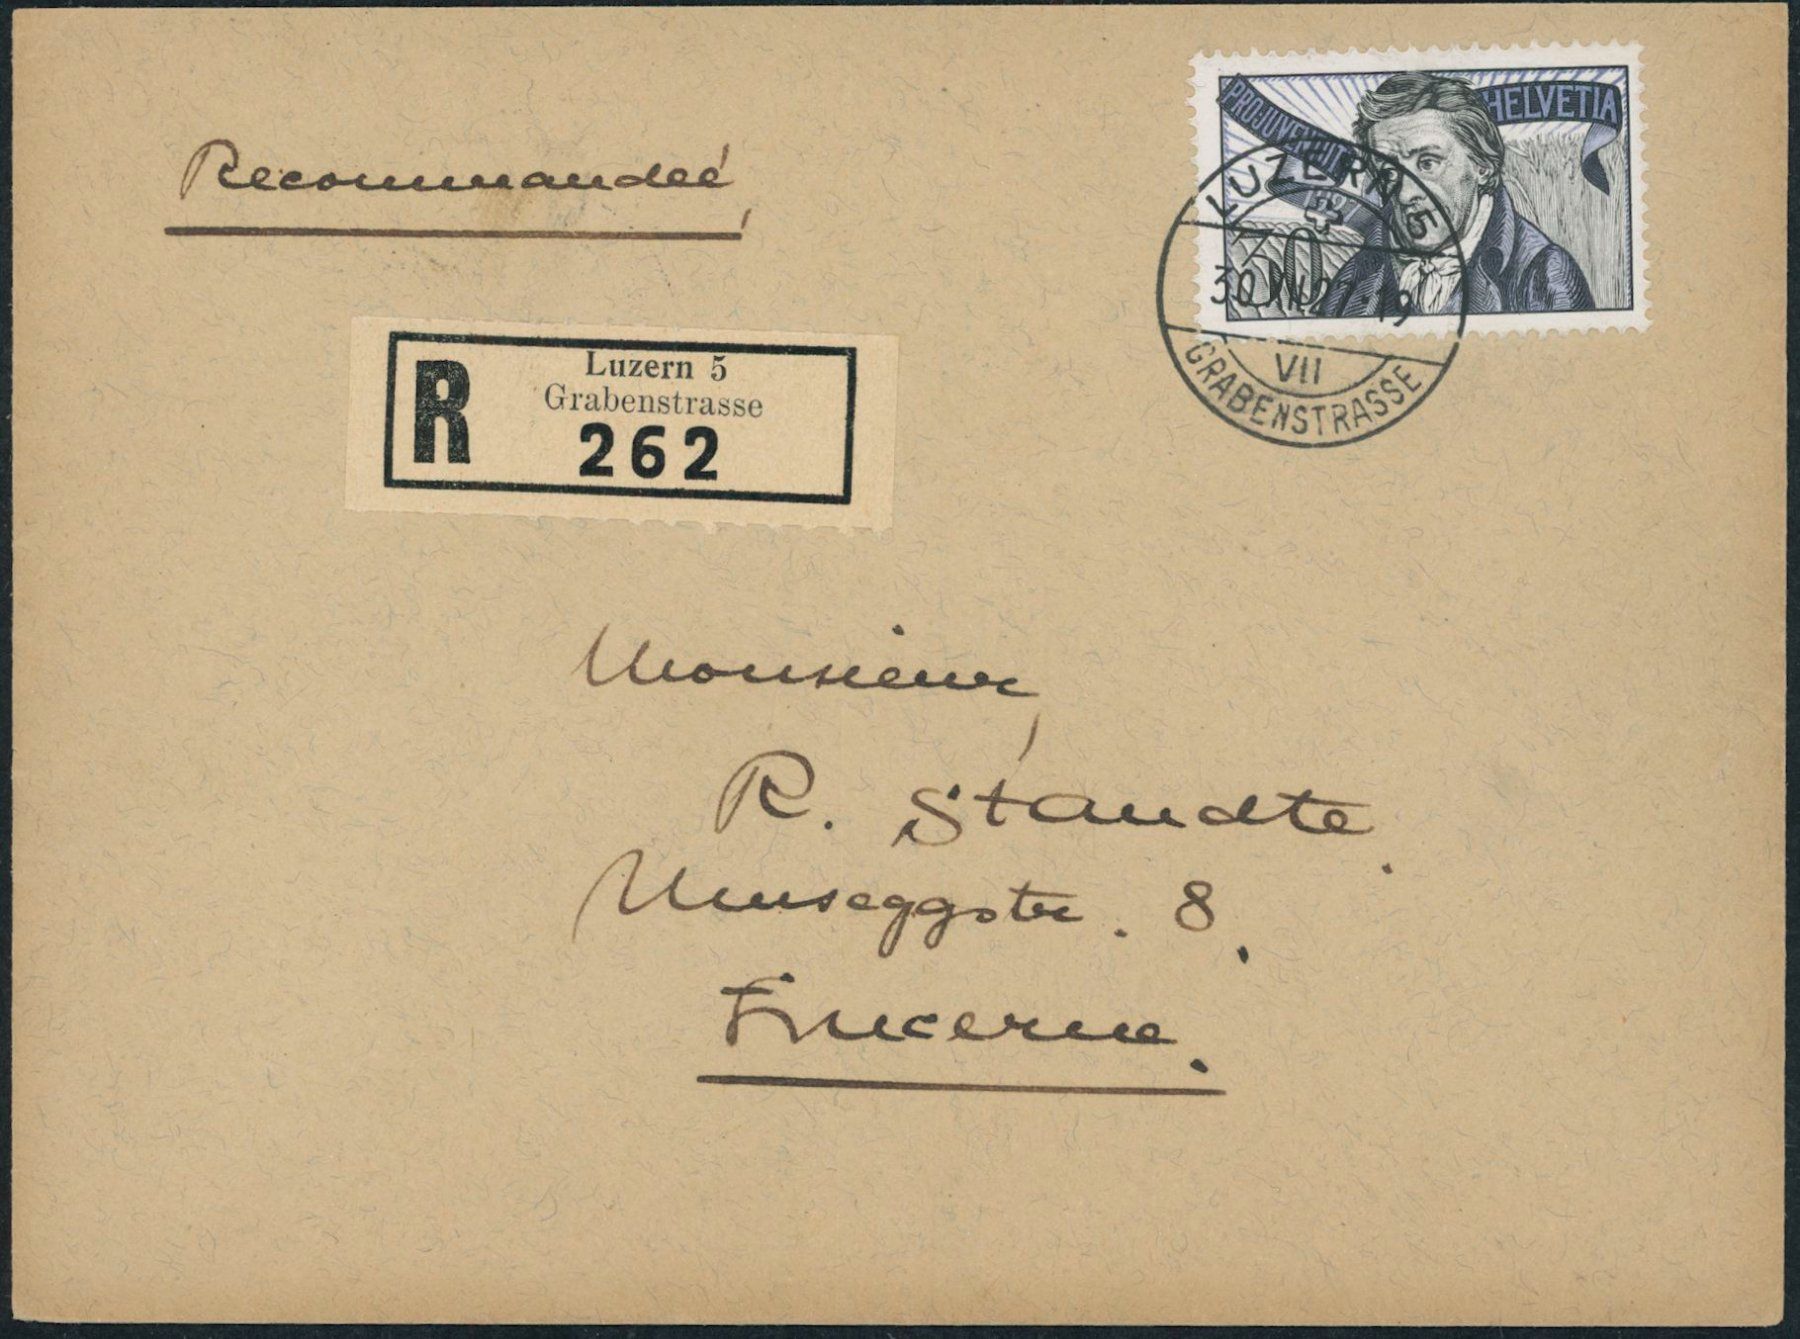 Recommandeé
PRO JUVENTUTE
HELVETIA
1927
30
LUZERN 5
30.XII.27.19
VII
GRABENSTRASSE
R
Luzern 5
Grabenstrasse
262
Monsieur,
R. Staudte.
Museggstr. 8.
Lucerne.